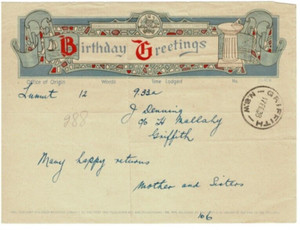 Birthday Greetings
Office of Origin Words Time Lodged No.
12 9.32a
J Denning
c/o H Mallaly
Griffith
Many happy returns
Mother and Sisters
GRIFFITH
N.S.W